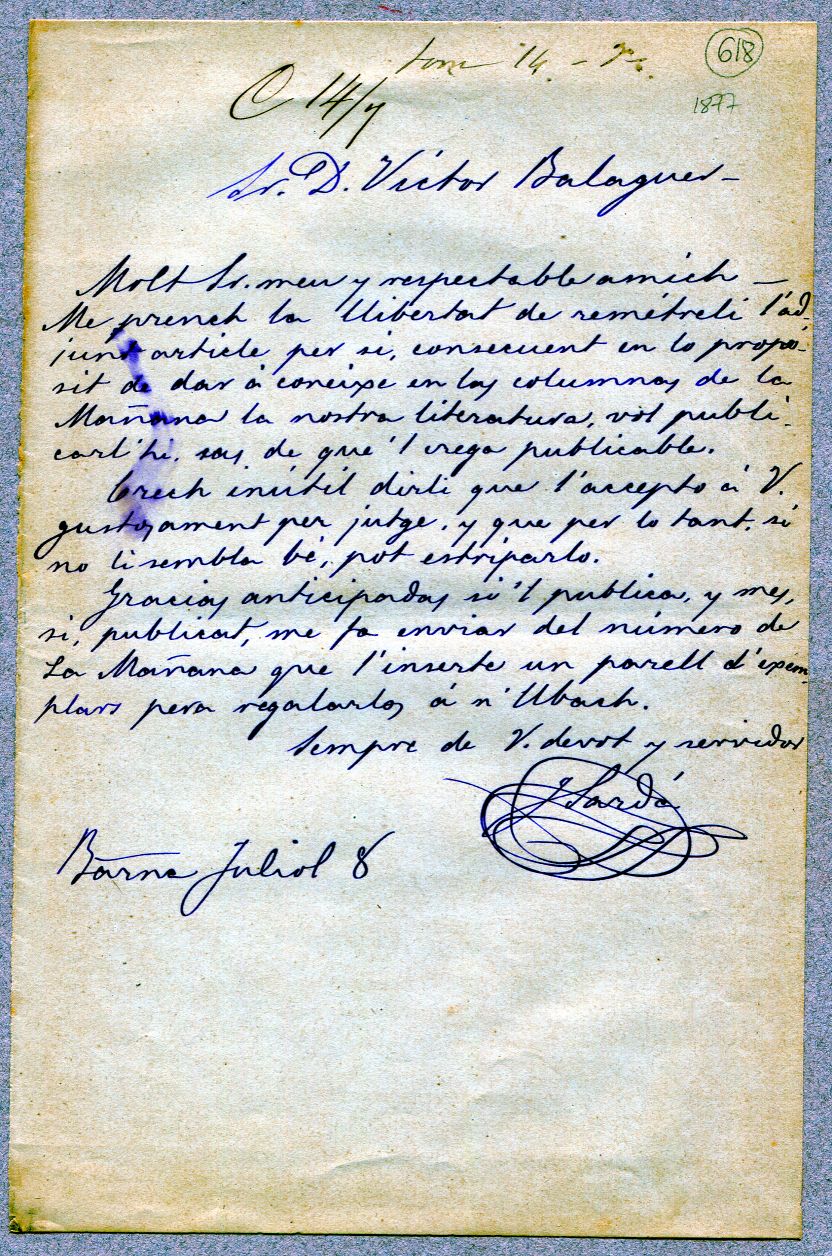 618
1877
C 14/7
Sr. D. Víctor Balaguer –
Molt Sr. meu y respectable amich –
Me prench la llibertat de remétreli l'ad-
junt article per si, consecuent en lo propó-
sit de dar á coneixe en las columnas de la
Mañana la nostra literatura, vol publi-
carl'hi, cas de que 'l crega publicable.
Crech inútil dirli que l'accepto á V.
gustosament per jutge, y que per lo tant, si
no li sembla bé, pot estriparlo.
Gracias anticipadas si 'l publica, y mes,
si, publicat, me fa enviar del número de
La Mañana que l'inserte un parell d'exem-
plars pera regalarlos á n' Ubach.
Sempre de V. devot y servidor
J Sardá
Barna Juliol 8